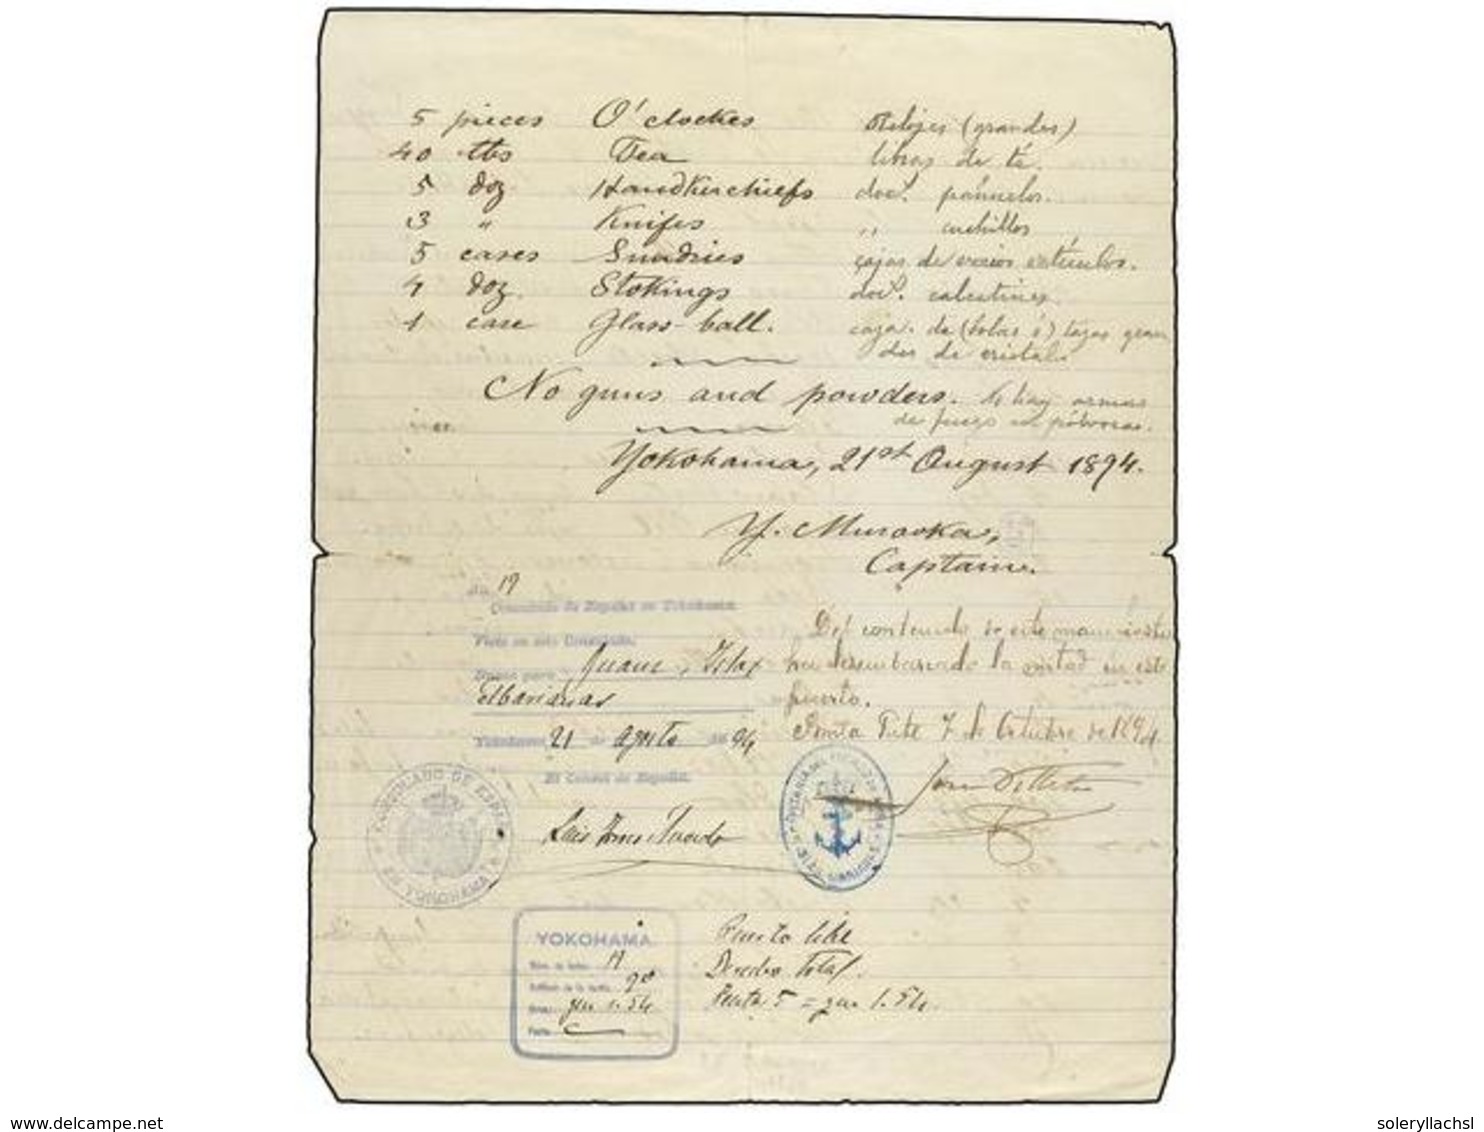 5 pieces O'clockes Relojes (grandes)
40 lbs Tea libras de té.
5 doz. Handkerchiefs doc.ˢ pañuelos.
3 " Knifes " cuchillos
5 cases Sundries cajas de varios artículos.
4 doz. Stokings doc.ˢ calcetines.
1 case Glass-ball. caja de (bolas ó) tazas gran
des de cristal.
No guns and powders. No hay armas
de fuego pólvoras.
Yokohama, 21st August 1894.
Y. Muraoka,
Captain.
19
Consulado de España en Yokohama.
Visto en este Consulado.
Bueno para
Marianas
Del contenido de este manifiesto
ha desembarcado la mitad en este
puerto.
Yokohama 21 de agosto de 94
7 de Octubre de 1894
El Consul de España.
CONSULADO DE ESPAÑA
EN YOKOHAMA
Luis
YOKOHAMA
19
90
yen 1.54
Puerto libre
Derecho total.
Peseta 5 = yen 1.54.
delcampe.net
soleryllachsl